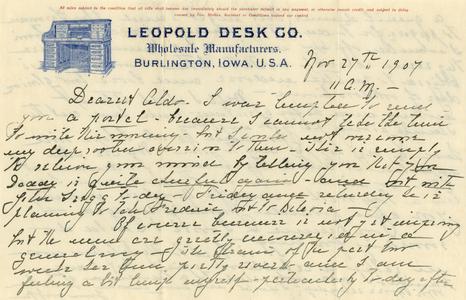 All sales subject to the condition that all bills shall become due immediately should the purchaser default in any payment, or otherwise impair credit, and subject to delay
caused by Fire, Strikes, Accident or Conditions beyond our control.
LEOPOLD DESK CO.
Wholesale Manufacturers.
BURLINGTON, IOWA, U.S.A.
Nov 27th 1907
11 A.M. —
Dearest Aldo - I was tempted to send
you a postal - because I cannot take the time
to write this morning - but I could not overcome
my deep rooted aversion to them - This is simply
to relieve your mind by telling you that
Daddy is quite cheerful again - and out with
today - Friday and Saturday he is
planning to take Frederic to
Of course business is not yet inspiring
but the men are greatly encouraged in a
general way - The strain of the past two
weeks has been pretty severe - and I am
feeling a bit limp myself - particularly to-day after